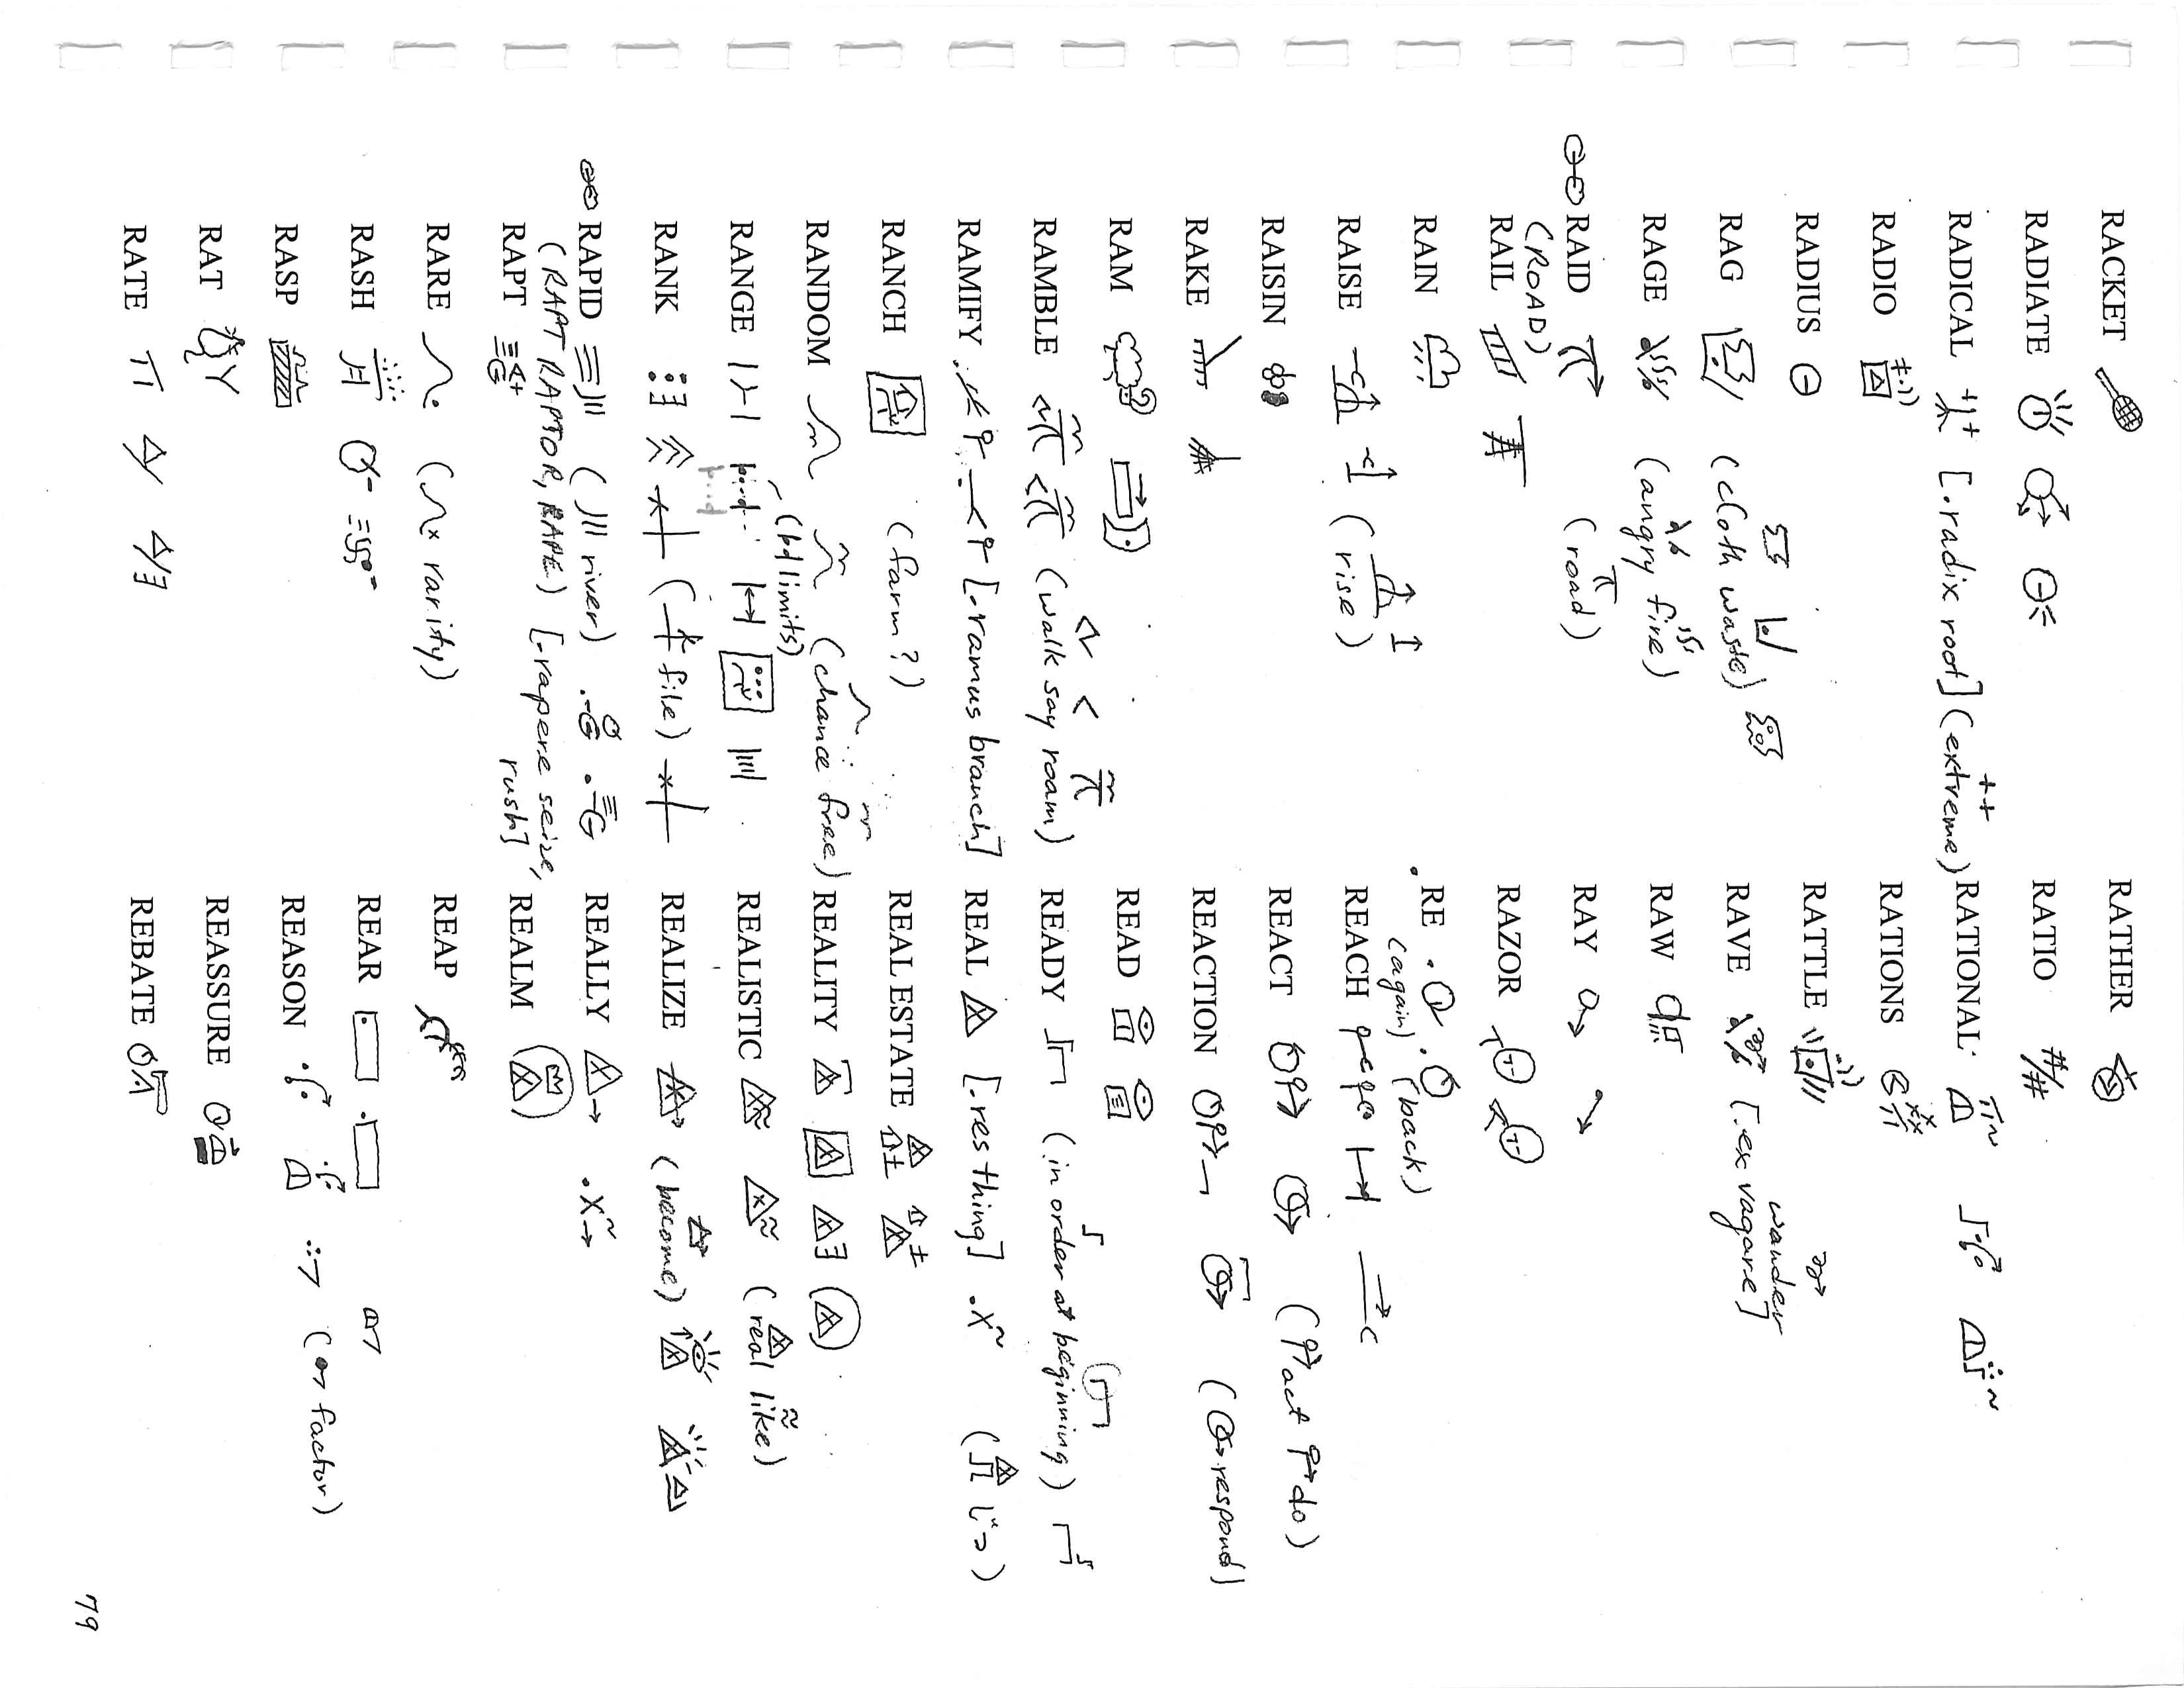 RACKET
RADIATE
RADICAL [.radix root] (extreme)
RADIO
RADIUS
RAG (cloth waste)
RAGE (angry fire)
RAID (road)
(ROAD)
RAIL
RAIN
RAISE (rise)
RAISIN
RAKE
RAM
RAMBLE (walk say roam)
RAMIFY [.ramus branch]
RANCH (farm?)
RANDOM (chance free)
(bd limits)
RANGE
RANK (file)
RAPID (river)
(RAPT RAPTOR, RAPE) [.rapere seize,
rush]
RAPT
RARE (rarity)
RASH
RASP
RAT
RATE
RATHER
RATIO #/#
RATIONAL
RATIONS
RATTLE
wander
RAVE [.ex vagare]
RAW
RAY
RAZOR
.RE
(again) (back)
REACH
REACT (act do)
REACTION (respond)
READ
READY (in order at beginning)
REAL [.res thing]
REAL ESTATE
REALITY
REALISTIC (real like)
REALIZE (become)
REALLY
REALM
REAP
REAR
REASON (factor)
REASSURE
REBATE
79